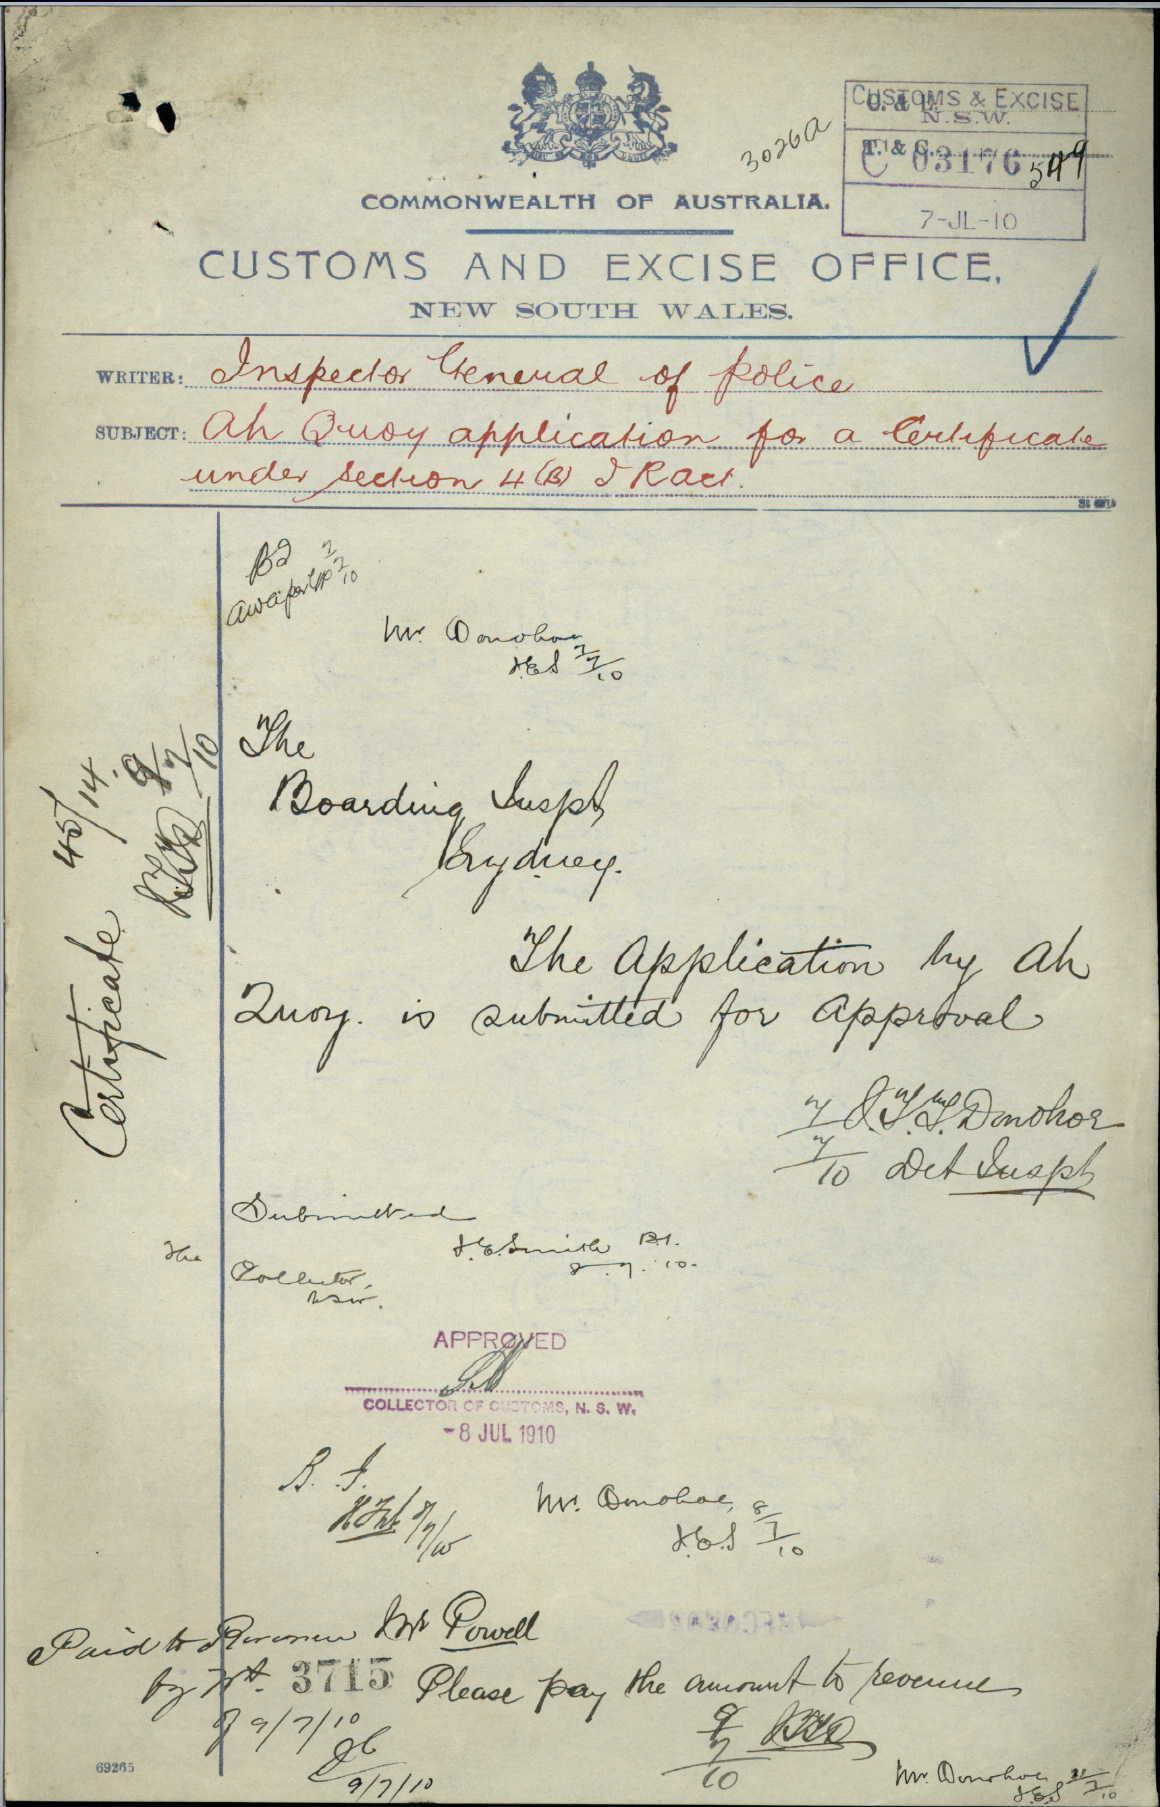 3026A
CUSTOMS & EXCISE
N.S.W.
C. & E.
T. & C.
C 03176 549
7-JL-10
COMMONWEALTH OF AUSTRALIA.
CUSTOMS AND EXCISE OFFICE,
NEW SOUTH WALES.
WRITER: Inspector General of Police
SUBJECT: Ah Quoy application for a Certificate
under section 4(B) I R Act.
Mr. Donohoe
J.E.S 7/7/10
The
Boarding Inspt
Sydney.
Certificate 45/14.
9/7/10
The Application by Ah
Quoy. is submitted for Approval
7/7/10 J.T.T. Donohoe
Det Inspt
Submitted
J.E. Smith B.I.
8.7.10.
The
Collector,
NSW.
APPROVED
COLLECTOR OF CUSTOMS, N. S. W.
-8 JUL 1910
B. I.
8/7/10
Mr. Donohoe, 8/7/10
J.E.S
Mr Powell
Paid to Revenue
by No. 3715
of 9/7/10
9/7/10
Please pay the amount to revenue
9/7/10 JTTD
Mr. Donohoe 11/7/10
J.E.S
69265